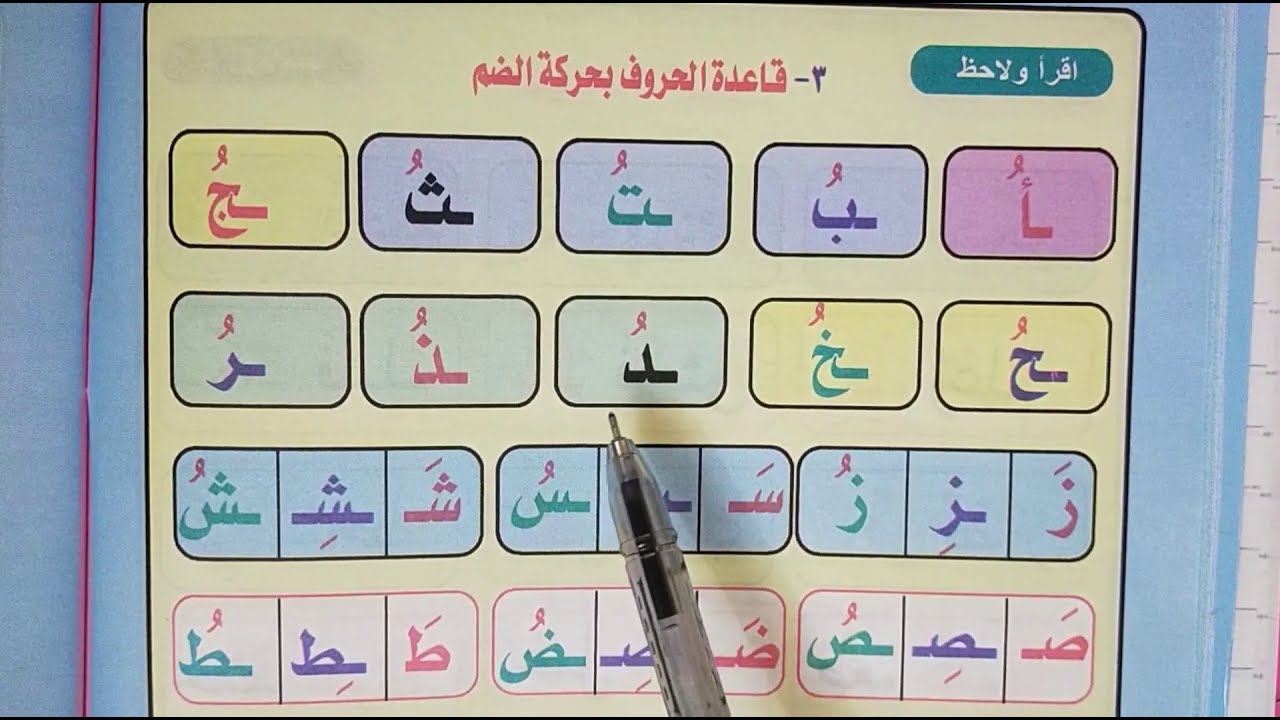 اقرأ ولاحظ
٣- قاعدة الحروف بحركة الضم
ـأُ ـبُ ـتُ ـثُ ـجُ
ـحُ ـخُ ـدُ ـذُ ـرُ
زَ ـزِ زُ سَـ ـسُ شَـ ـشِـ ـشُ
صَـ ـصِـ ـصُ ضَـ ـضُ طَ ـطِ ـطُ